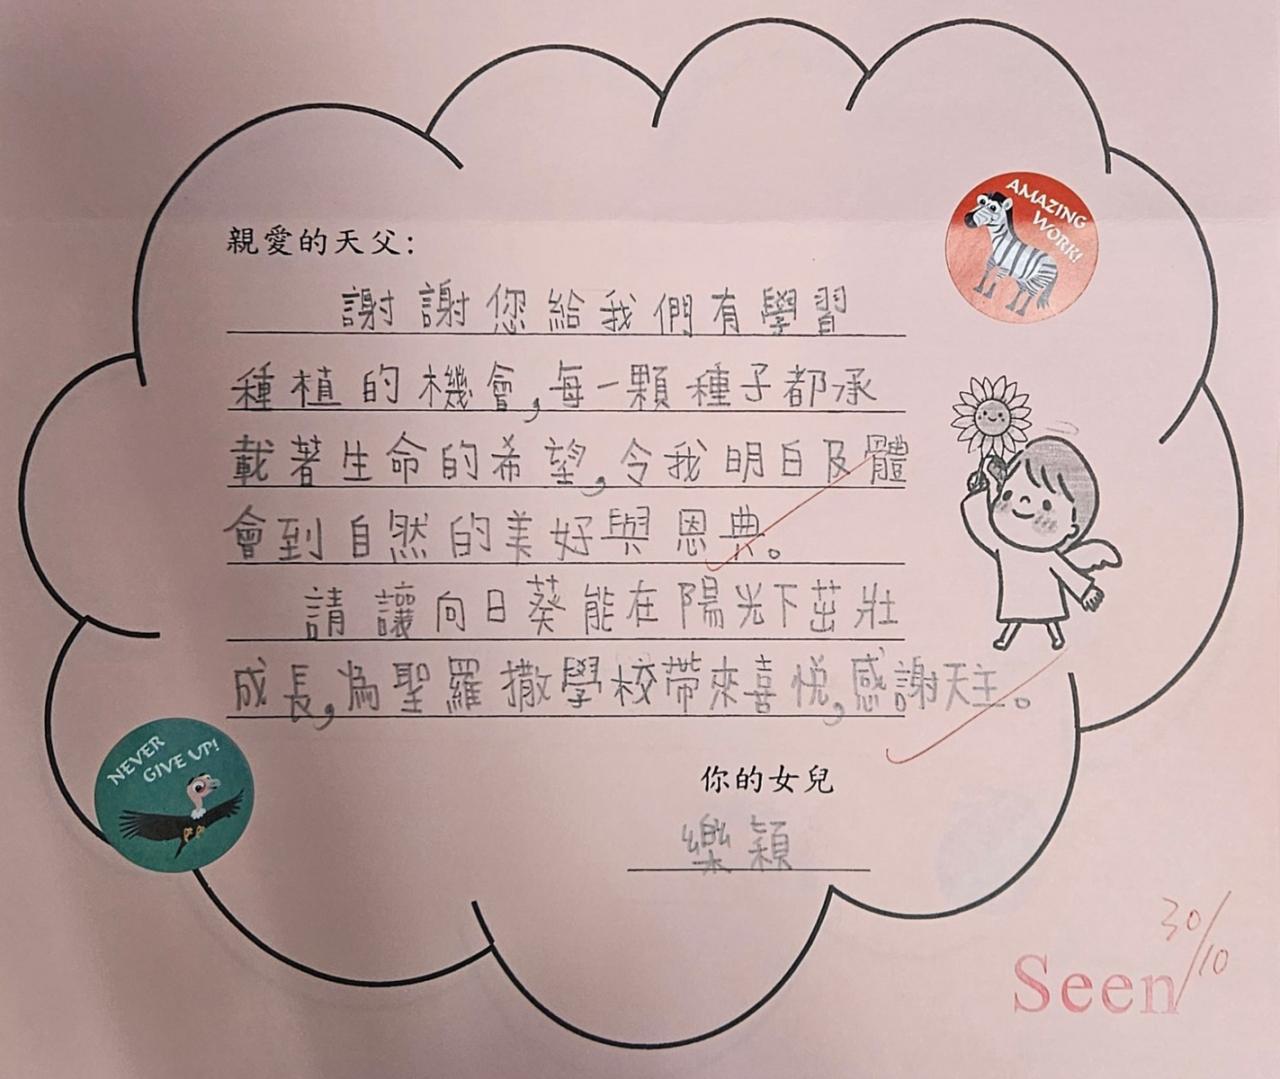 AMAZING
WORK!
親愛的天父:
謝謝您給我們有學習
種植的機會,每一顆種子都承
載著生命的希望,令我明白及體
會到自然的美好與恩典。
請讓向日葵能在陽光下茁壯
成長,為聖羅撒學校帶來喜悅,感謝天主。
NEVER
GIVE UP!
你的女兒
樂穎
30/10
Seen